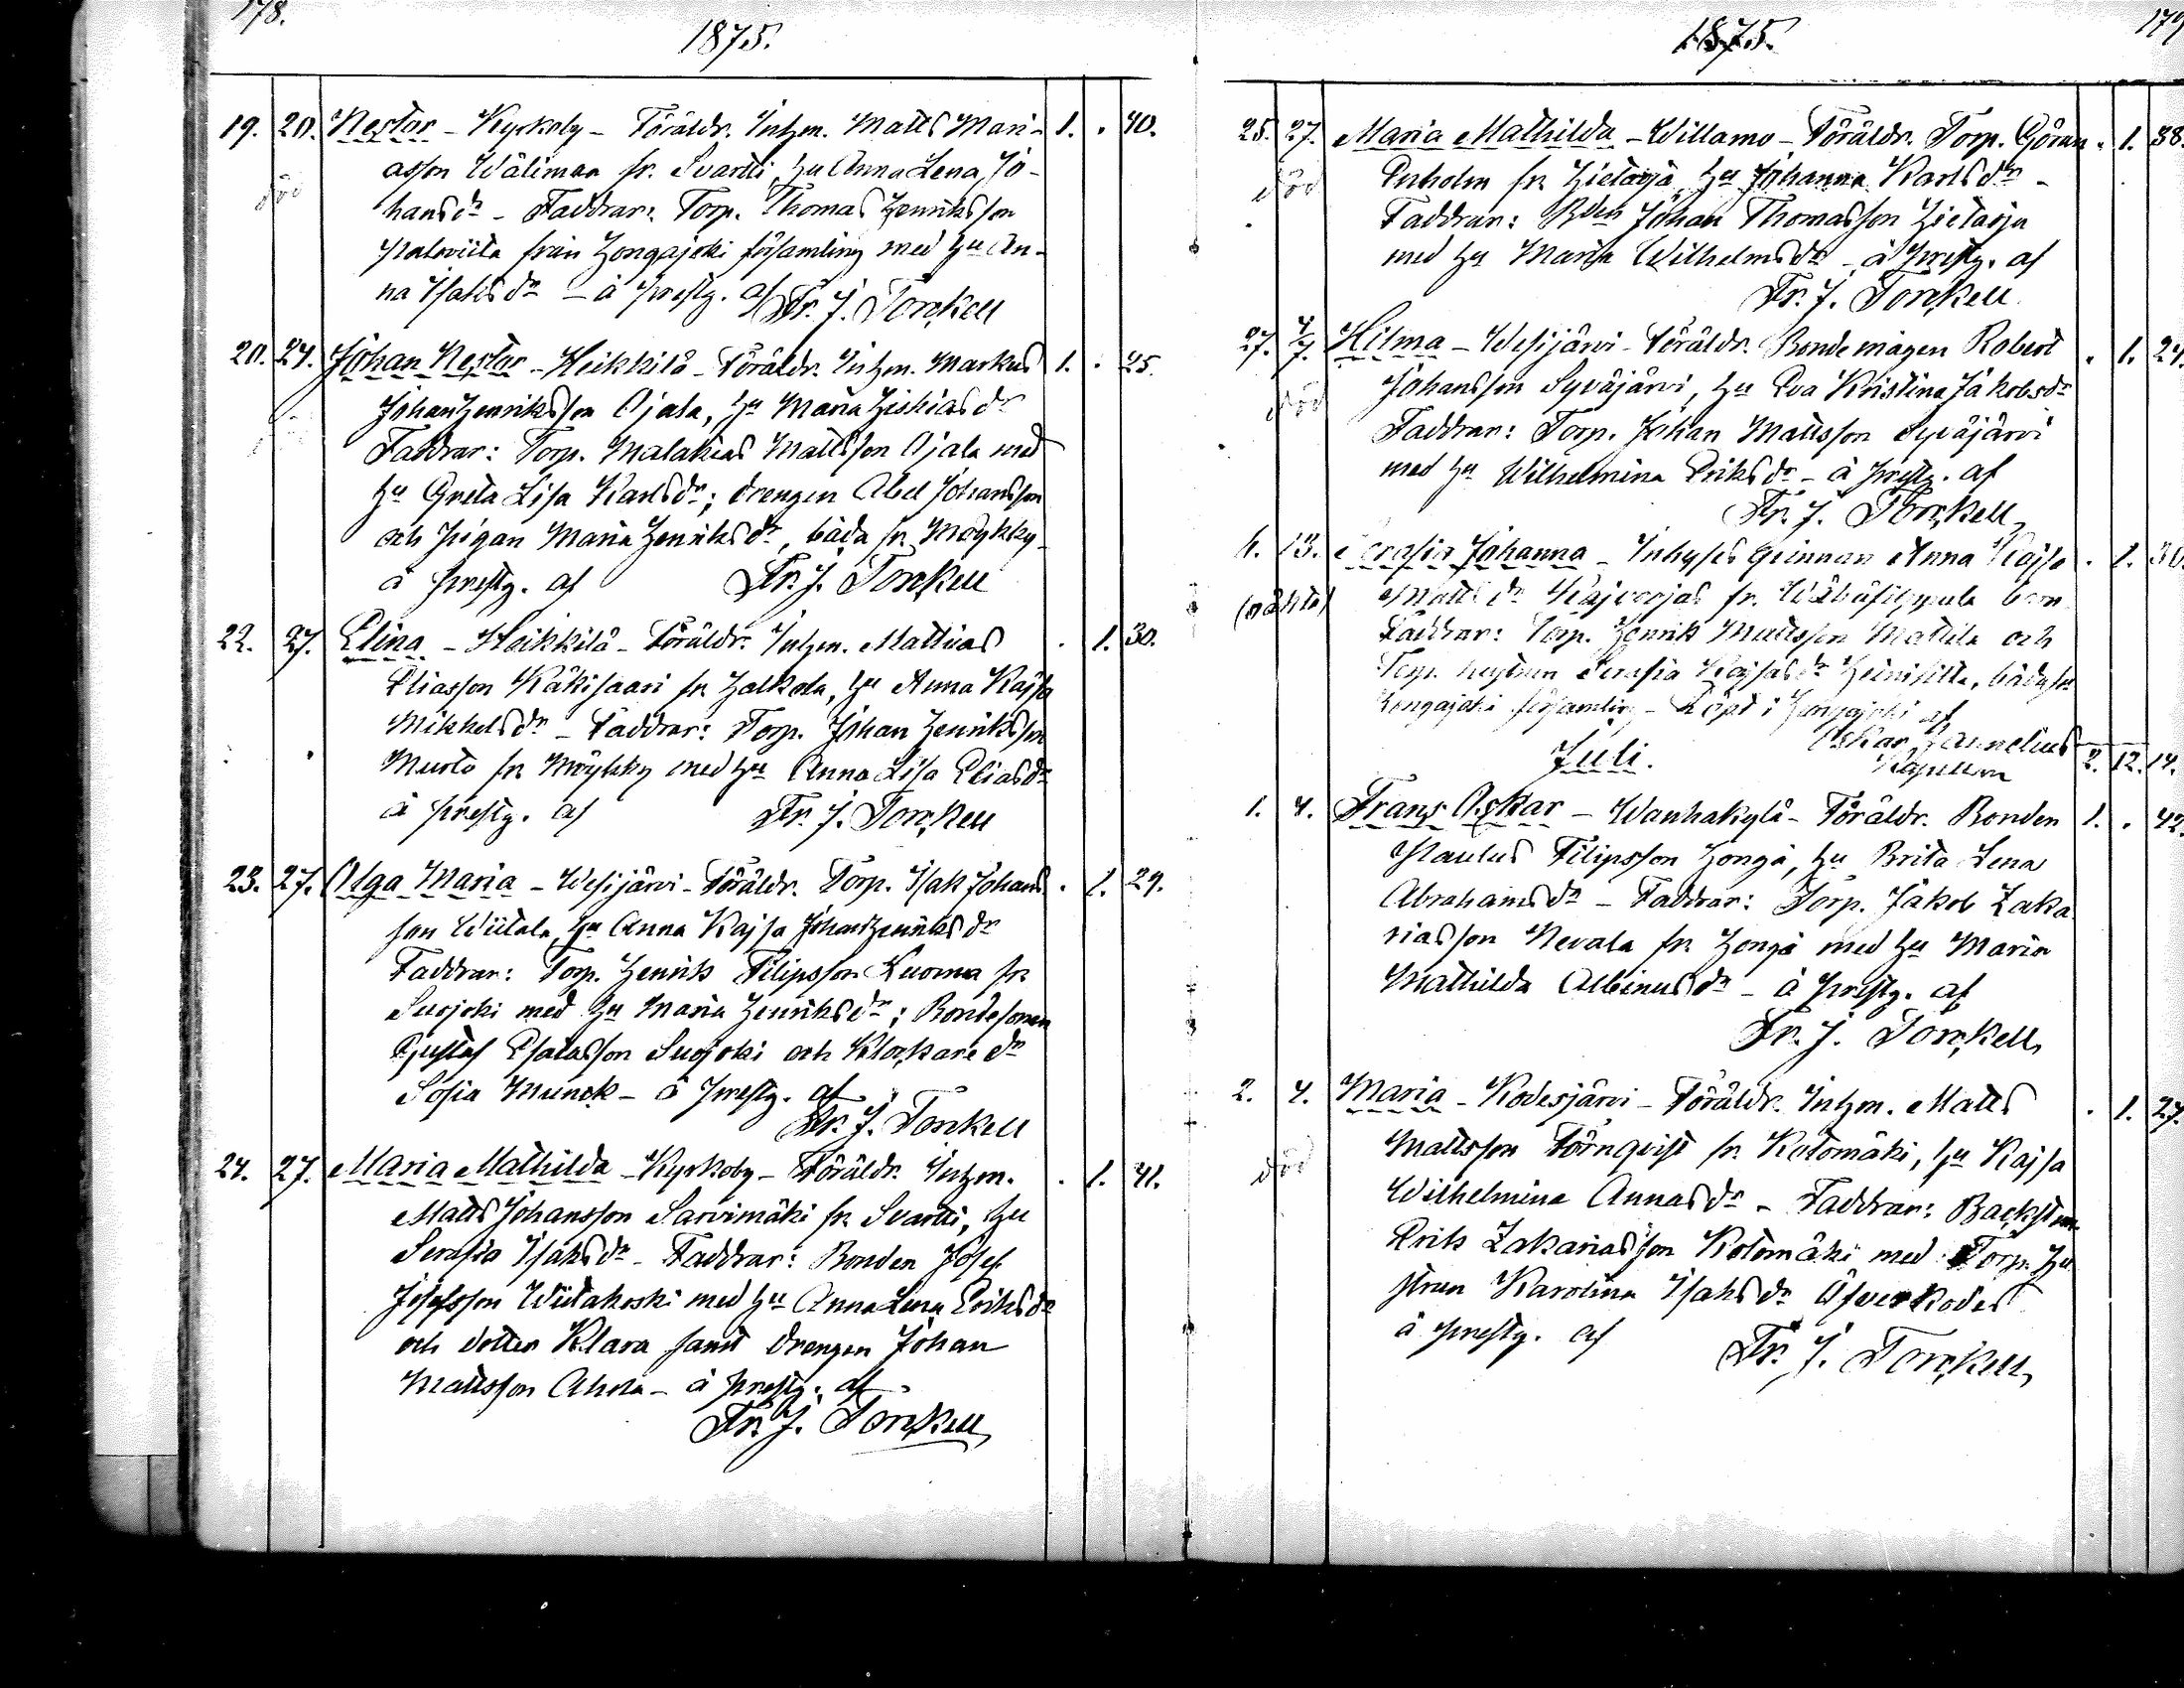 178.
1875.
19. 20. Nestor - Kyrkoby - Föräldr. Inhm. Matts Mari- 1. . 40.
asson Wälimaa fr. Svartti, hu Anna Lena Jo-
död
hansdr - Faddrar: Torp. Thomas Henriksson
Paloviita från Hongajoki församling med hu An-
na Isaksdr - å prestg. af Fr. J. Torckell
20. 24. Johan Nestor - Heikkilä - Föräldr. Inhm. Markus 1. . 25.
Johan Henriksson Ojala, hu Maria Hiskiasdr
Faddrar: Torp. Malakias Mattsson Ojala med
hu Greta Lisa Karlsdr; drengen Abel Johansson
och pigan Maria Henriksdr, båda fr. Möykky-
å prestg. af Fr. J. Torckell
22. 27. Elina - Heikkilä - Föräldr. Inhm. Mattias . 1. 30.
Eliasson Käkisaari fr. Halkola, hu Anna Kajsa
Mikkelsdr - Faddrar: Torp. Johan Henriksson
Musto fr. Möykky med hu Anna Lisa Eliasdr
å prestg. af Fr. J. Torckell
23. 27. Olga Maria - Wesijärvi - Föräldr. Torp. Isak Johans- . 1. 29.
son Wiitala, hu Anna Kajsa Johan Henriksdr
Faddrar: Torp. Henrik Filipsson Luoma fr.
Suojoki med hu Maria Henriksdr; Bondesonen
Gustaf Esaiasson Suojoki och Klockare dr
Sofia Munck - å prestg. af
Fr. J. Torckell
24. 27. Maria Mathilda - Kyrkoby - Föräldr. Inhm. . 1. 41.
Matts Johansson Sarvimäki fr. Svartti, hu
Serafia Isaksdr - Faddrar: Bonden Josef
Josefsson Wiitakoski med hu Anna Lena Eriksdr
och dotter Klara samt drengen Johan
Mattsson Ahola - å prestg. af
Fr. J. Torckell
1875.
179
25. 27. Maria Mathilda - Willamo - Föräldr. Torp. Göran . 1. 38.
Enholm fr. Hietaoja hu Johanna Karlsdr -
död
Faddrar: Bden Johan Thomasson Hietaoja
med hu Maria Wilhelmsdr - å prestg. af
Fr. J. Torckell
27. 4/7. Hilma - Wesijärvi - Föräldr. Bondemågen Robert . 1. 24.
Johansson Syväjärvi, hu Eva Kristina Jakobsdr
död
Faddrar: Torp. Johan Mattsson Syväjärvi
med hu Wilhelmina Eriksdr - å prestg. af
Fr. J. Torckell
6. 13. Serafia Johanna - Inhyses qvinnan Anna Kajsa . 1. 30.
(oäkta) Mattsdr Kajvoojas fr. barn
Faddrar: Torp. Henrik Mattsson Mattila och
Torp. hustrun Serafia Kajsasdr båda fr.
Hongajoki församling - Döpt i Hongajoki af
Oskar Jannelius
Juli. Kapellan 2. 12. 14.
1. 4. Frans Oskar - Wanhakylä - Föräldr. Bonden 1. . 42.
Paulus Filipsson Honga, hu Brita Lena
Abrahamsdr - Faddrar: Torp. Jakob Zaka
riasson Nevala fr. Honga med hu Maria
Mathilda Albinusdr - å prestg. af
Fr. J. Torckell
2. 4. Maria - Kodesjärvi - Föräldr. Inhm. Matts . 1. 27.
Mattsson Törnqvist fr. Kotomäki, hu Kajsa
död
Wilhelmina Annasdr - Faddrar: Backstm.
Erik Zakariasson Kotomäki med Torp. hu
strun Karolina Isaksdr Öfverkodes
å prestg. af Fr. J. Torckell